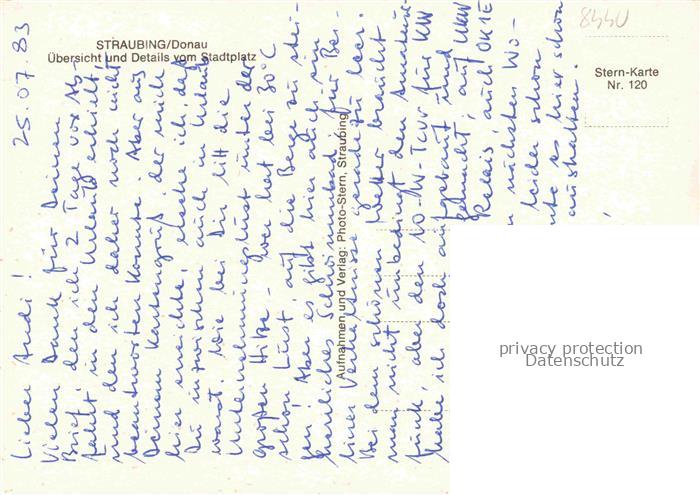 STRAUBING/Donau
Übersicht und Details vom Stadtplatz
8440
Stern-Karte
Nr. 120
Aufnahmen und Verlag: Photo-Stern, Straubing
25.07.83
Lieber Andi!
Vielen Dank für Deinen
Brief, den ich 2 Tage vor Ab-
fahrt in den Urlaub erhielt
und den ich daher noch nicht
beantworten konnte. Aber aus
Deinem Kartengruß, der mich
hier erreichte, ersehe ich, daß
Du inzwischen auch in Urlaub
warst. Wie bei Dir litt die
Unternehmungslust unter der
großen Hitze - wer hat bei 30°C
schon Lust, auf die Berge zu stei-
gen! Aber es gibt hier auch ein
herrliches Schwimmbad, für Ber-
liner Verhältnisse geradezu leer.
Bei dem schönen Wetter braucht
man nicht unbedingt den Amateur-
funk, aber den 10-W-Tcvr für KW
habe ich doch aufgebaut und
gehört, auf UKW
Relais, auch OK1E
nächsten Wo-
leider schon
es hier schon
aushalten.
privacy protection
Datenschutz